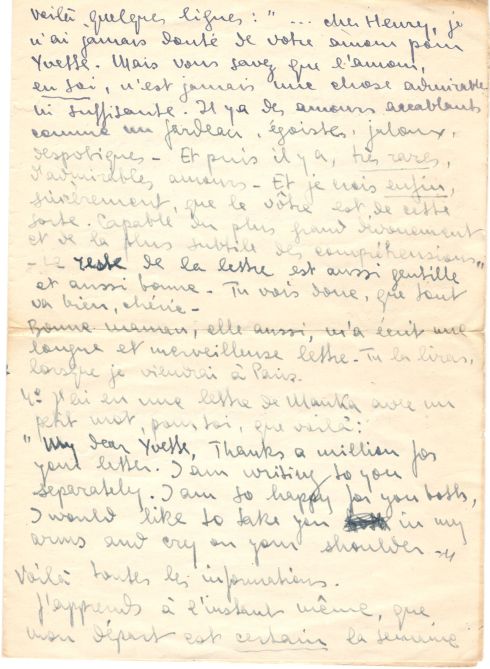 voilà quelques lignes : " ... cher Henry, je
n'ai jamais douté de votre amour pour
Yvette. Mais vous savez que l'amour,
en soi, n'est jamais une chose admirable
ni suffisante. Il y a des amours accablants
comme un fardeau, égoistes, jaloux,
despotiques - Et puis il y a, très rares,
d'admirables amours - Et je crois enfin,
sincèrement, que le vôtre est de cette
sorte. Capable du plus grand dévouement
et de la plus subtile des compréhensions"
- Le reste de la lettre est aussi gentille
et aussi bonne - Tu vois donc, que tout
va bien, chérie -
Bonne maman, elle aussi, m'a écrit une
longue et merveilleuse lettre - Tu la liras,
lorsque je viendrai à Paris.
4° J'ai eu une lettre de Manka avec un
petit mot, pour toi, que voilà :
"My dear Yvette, Thanks a million for
your letter. I am writing to you
separately. I am so happy for you both,
I would like to take you in my
arms and cry on your shoulder -"
Voilà toutes les informations.
J'apprends à l'instant même, que
mon départ est certain la semaine